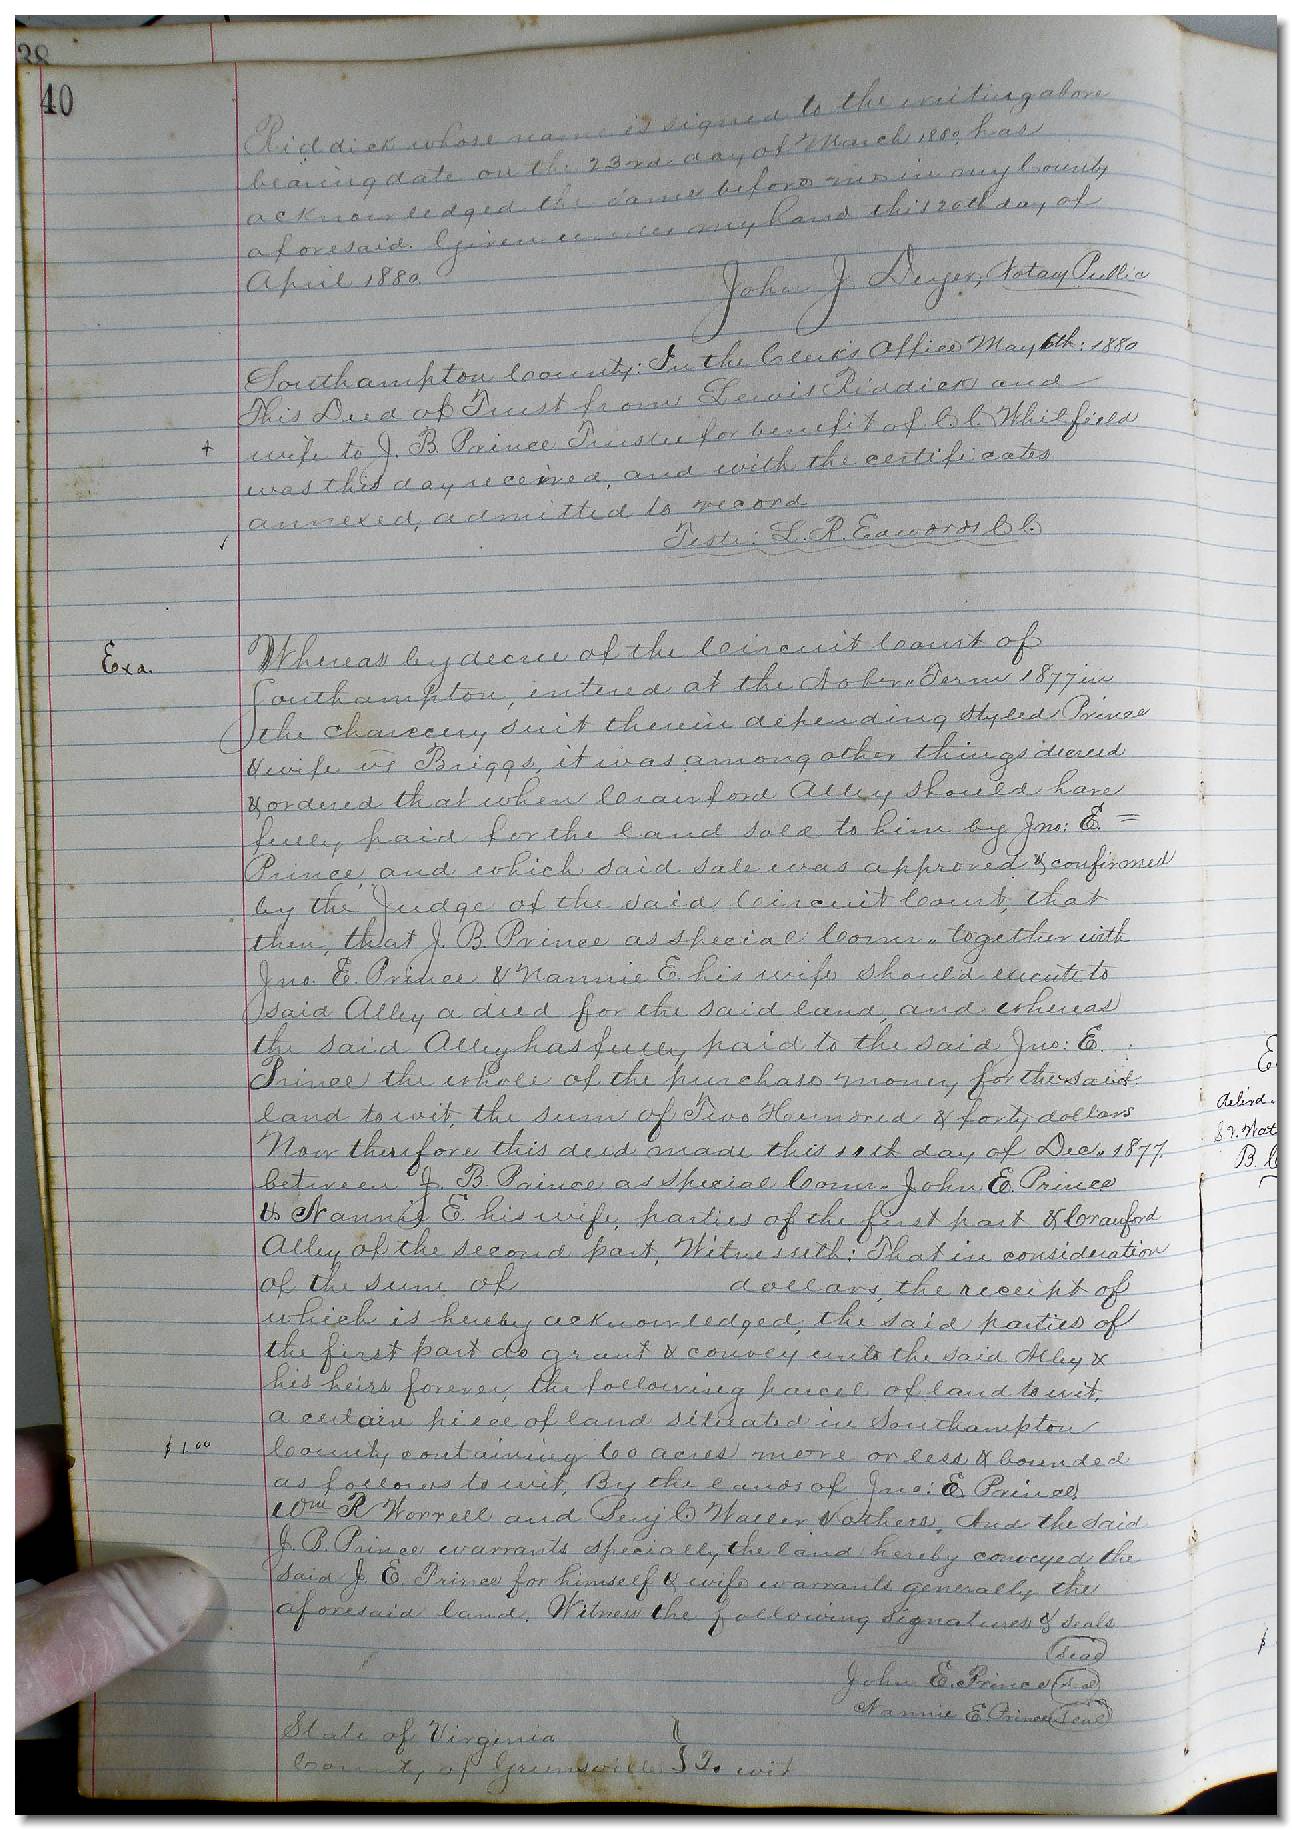 38
40
Riddick whose name is signed to the writing above
bearing date on the 23rd day of March 1880, has
acknowledged the same before me in my County
aforesaid. Given under my hand this 20th day of
April 1880
John J. Dyer, Notary Public
Southampton County: In the Clerk's Office May 6th: 1880
This Deed of Trust from Lewis Riddick and
+ wife to J. B. Prince Trustee for benefit of C. C. Whitfield
was this day received, and with the certificates
annexed, admitted to record
Teste: L. R. Edwards C. C.
Exa. Whereas by decree of the Circuit Court of
Southampton, entered at the Nober. Term 1877 in
the chancery suit therein depending styled Prince
& wife vs Briggs, it was among other things decreed
& ordered that when Crawford Alley should have
fully paid for the land sold to him by Jno: E. =
Prince, and which said sale was approved & confirmed
by the Judge of the said Circuit Court, that
then, that J. B. Prince as special Comr. together with
Jno. E. Prince & Nannie E. his wife should execute to
said Alley a deed for the said land, and whereas
the said Alley has fully paid to the said Jno: E.
Prince the whole of the purchase money for the said
land to wit, the sum of Two Hundred & forty dollars
Now therefore this deed made this 11th day of Dec. 1877
between J. B. Prince as special Comr. John E. Prince
& Nannie E. his wife, parties of the first part & Crawford
Alley of the second part, Witnesseth: That in consideration
of the sum of dollars, the receipt of
which is hereby acknowledged, the said parties of
the first part do grant & convey unto the said Alley &
his heirs forever, the following parcel of land to wit,
a certain piece of land situated in Southampton
$1.00 County containing 60 acres more or less & bounded
as follows to wit, By the lands of Jno: E. Prince,
Wm R Worrell and Benj C Waller & others. And the said
J. B. Prince warrants specially the land hereby conveyed the
said J. E. Prince for himself & wife warrants generally the
aforesaid land. Witness the following signatures & seals
(Seal)
John E. Prince (Seal)
Nannie E. Prince (Seal)
State of Virginia
County of Greensville } To wit